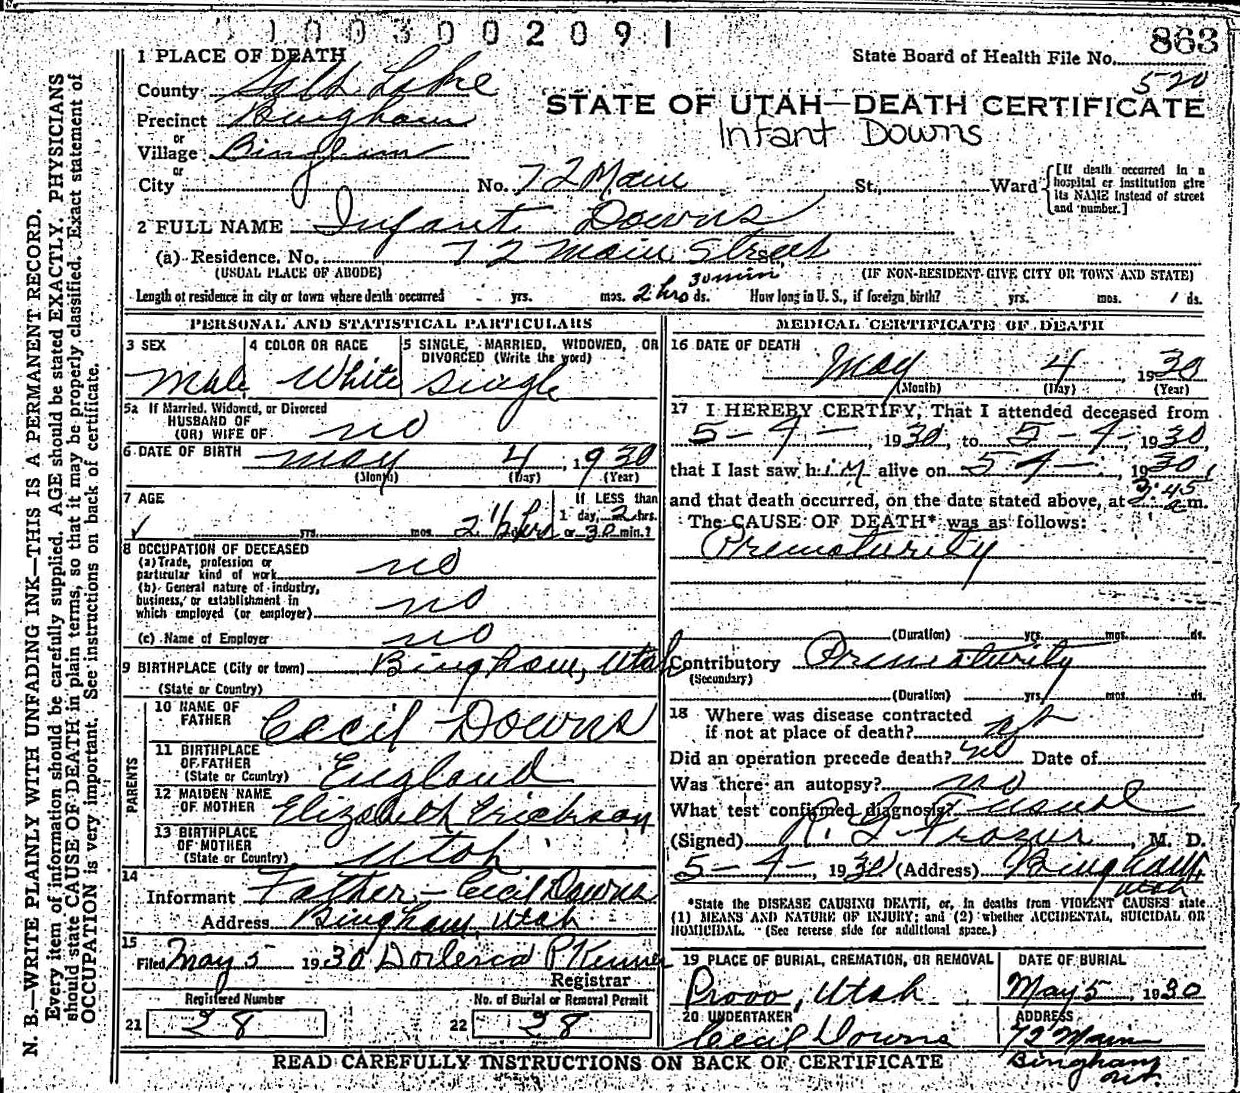 1003002091
863
State Board of Health File No.
520
1 PLACE OF DEATH
County Salt Lake
STATE OF UTAH—DEATH CERTIFICATE
Precinct Bingham
Infant Downs
or
Village Bingham
or
City No. 72 Main St., Ward
[If death occurred in a hospital or institution give its NAME instead of street and number.]
2 FULL NAME Infant Downs
(a) Residence. No. 72 Main Street
(USUAL PLACE OF ABODE) (IF NON-RESIDENT GIVE CITY OR TOWN AND STATE)
Length of residence in city or town where death occurred yrs. mos. 2 hrs 30 min ds. How long in U. S., if foreign birth? yrs. mos. 1 ds.
PERSONAL AND STATISTICAL PARTICULARS
3 SEX
Male
4 COLOR OR RACE
White
5 SINGLE, MARRIED, WIDOWED, OR DIVORCED (Write the word)
Single
5a If Married, Widowed, or Divorced
HUSBAND OF
(OR) WIFE OF no
6 DATE OF BIRTH May 4, 1930
(Month) (Day) (Year)
7 AGE
yrs. mos. 2 1/2 hrs
If LESS than
1 day, 2 hrs.
or 30 min.?
8 OCCUPATION OF DECEASED
(a) Trade, profession or
particular kind of work no
(b) General nature of industry,
business, or establishment in
which employed (or employer) no
(c) Name of Employer no
9 BIRTHPLACE (City or town) Bingham, Utah
(State or Country)
PARENTS
10 NAME OF
FATHER Cecil Downs
11 BIRTHPLACE
OF FATHER
(State or Country) England
12 MAIDEN NAME
OF MOTHER Elizabeth Erickson
13 BIRTHPLACE
OF MOTHER
(State or Country) Utah
14
Informant Father - Cecil Downs
Address Bingham, Utah
15
Filed May 5 1930
Registrar
Registered Number
21 28
No. of Burial or Removal Permit
22 28
MEDICAL CERTIFICATE OF DEATH
16 DATE OF DEATH
May 4 1930
(Month) (Day) (Year)
17 I HEREBY CERTIFY, That I attended deceased from
5-4- 1930, to 5-4- 1930,
that I last saw him alive on 5-4-, 1930,
and that death occurred, on the date stated above, at 3:45 m.
The CAUSE OF DEATH* was as follows:
Prematurity
(Duration) yrs. mos. ds.
Contributory Prematurity
(Secondary)
(Duration) yrs. mos. ds.
18 Where was disease contracted
if not at place of death?
Did an operation precede death? no Date of
Was there an autopsy? no
What test confirmed diagnosis? Usual
(Signed) R. G. Frazier, M. D.
5-4-, 1930 (Address) Bingham,
Utah
*State the DISEASE CAUSING DEATH, or, in deaths from VIOLENT CAUSES state
(1) MEANS AND NATURE OF INJURY; and (2) whether ACCIDENTAL, SUICIDAL OR
HOMICIDAL. (See reverse side for additional space.)
19 PLACE OF BURIAL, CREMATION, OR REMOVAL
Provo, Utah
DATE OF BURIAL
May 5, 1930
20 UNDERTAKER
Cecil Downs
ADDRESS
72 Main
Bingham
Ut.
READ CAREFULLY INSTRUCTIONS ON BACK OF CERTIFICATE
N. B.—WRITE PLAINLY WITH UNFADING INK—THIS IS A PERMANENT RECORD.
Every item of information should be carefully supplied. AGE should be stated EXACTLY. PHYSICIANS
should state CAUSE OF DEATH in plain terms, so that it may be properly classified. Exact statement of
OCCUPATION is very important. See instructions on back of certificate.